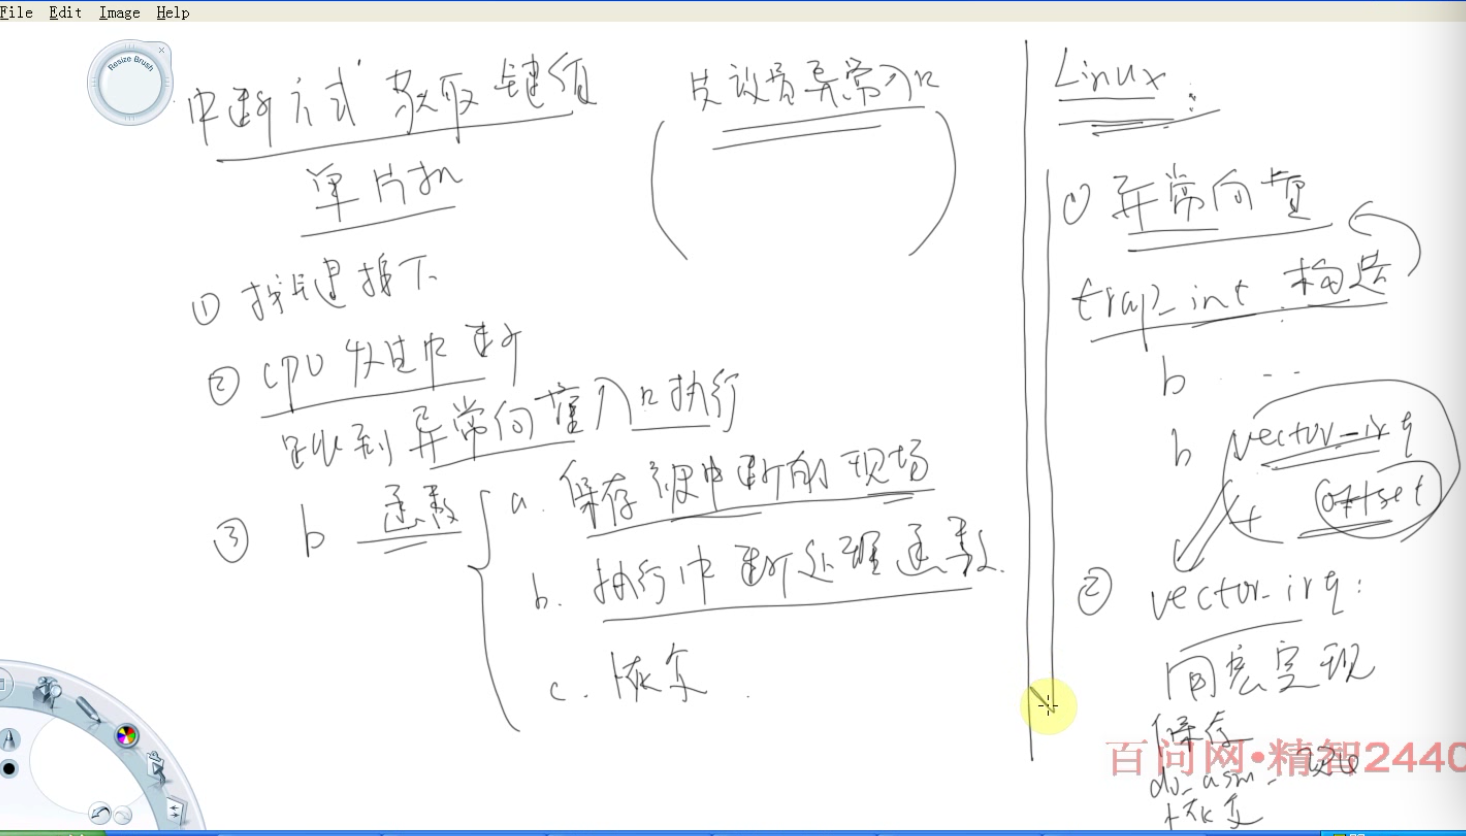 File Edit Image Help
Resize Brush
中断方式获取键值
单片机
先设置异常入口
① 按键按下
② CPU发生中断
跳到异常向量入口执行
③ b 函数
a. 保存被中断的现场
b. 执行中断处理函数.
c. 恢复.
Linux:
① 异常向量
trap_int 构造
b ...
b vector_irq
+ offset
② vector_irq:
用宏实现
保存
do_asm_
恢复
百问网•精智2440